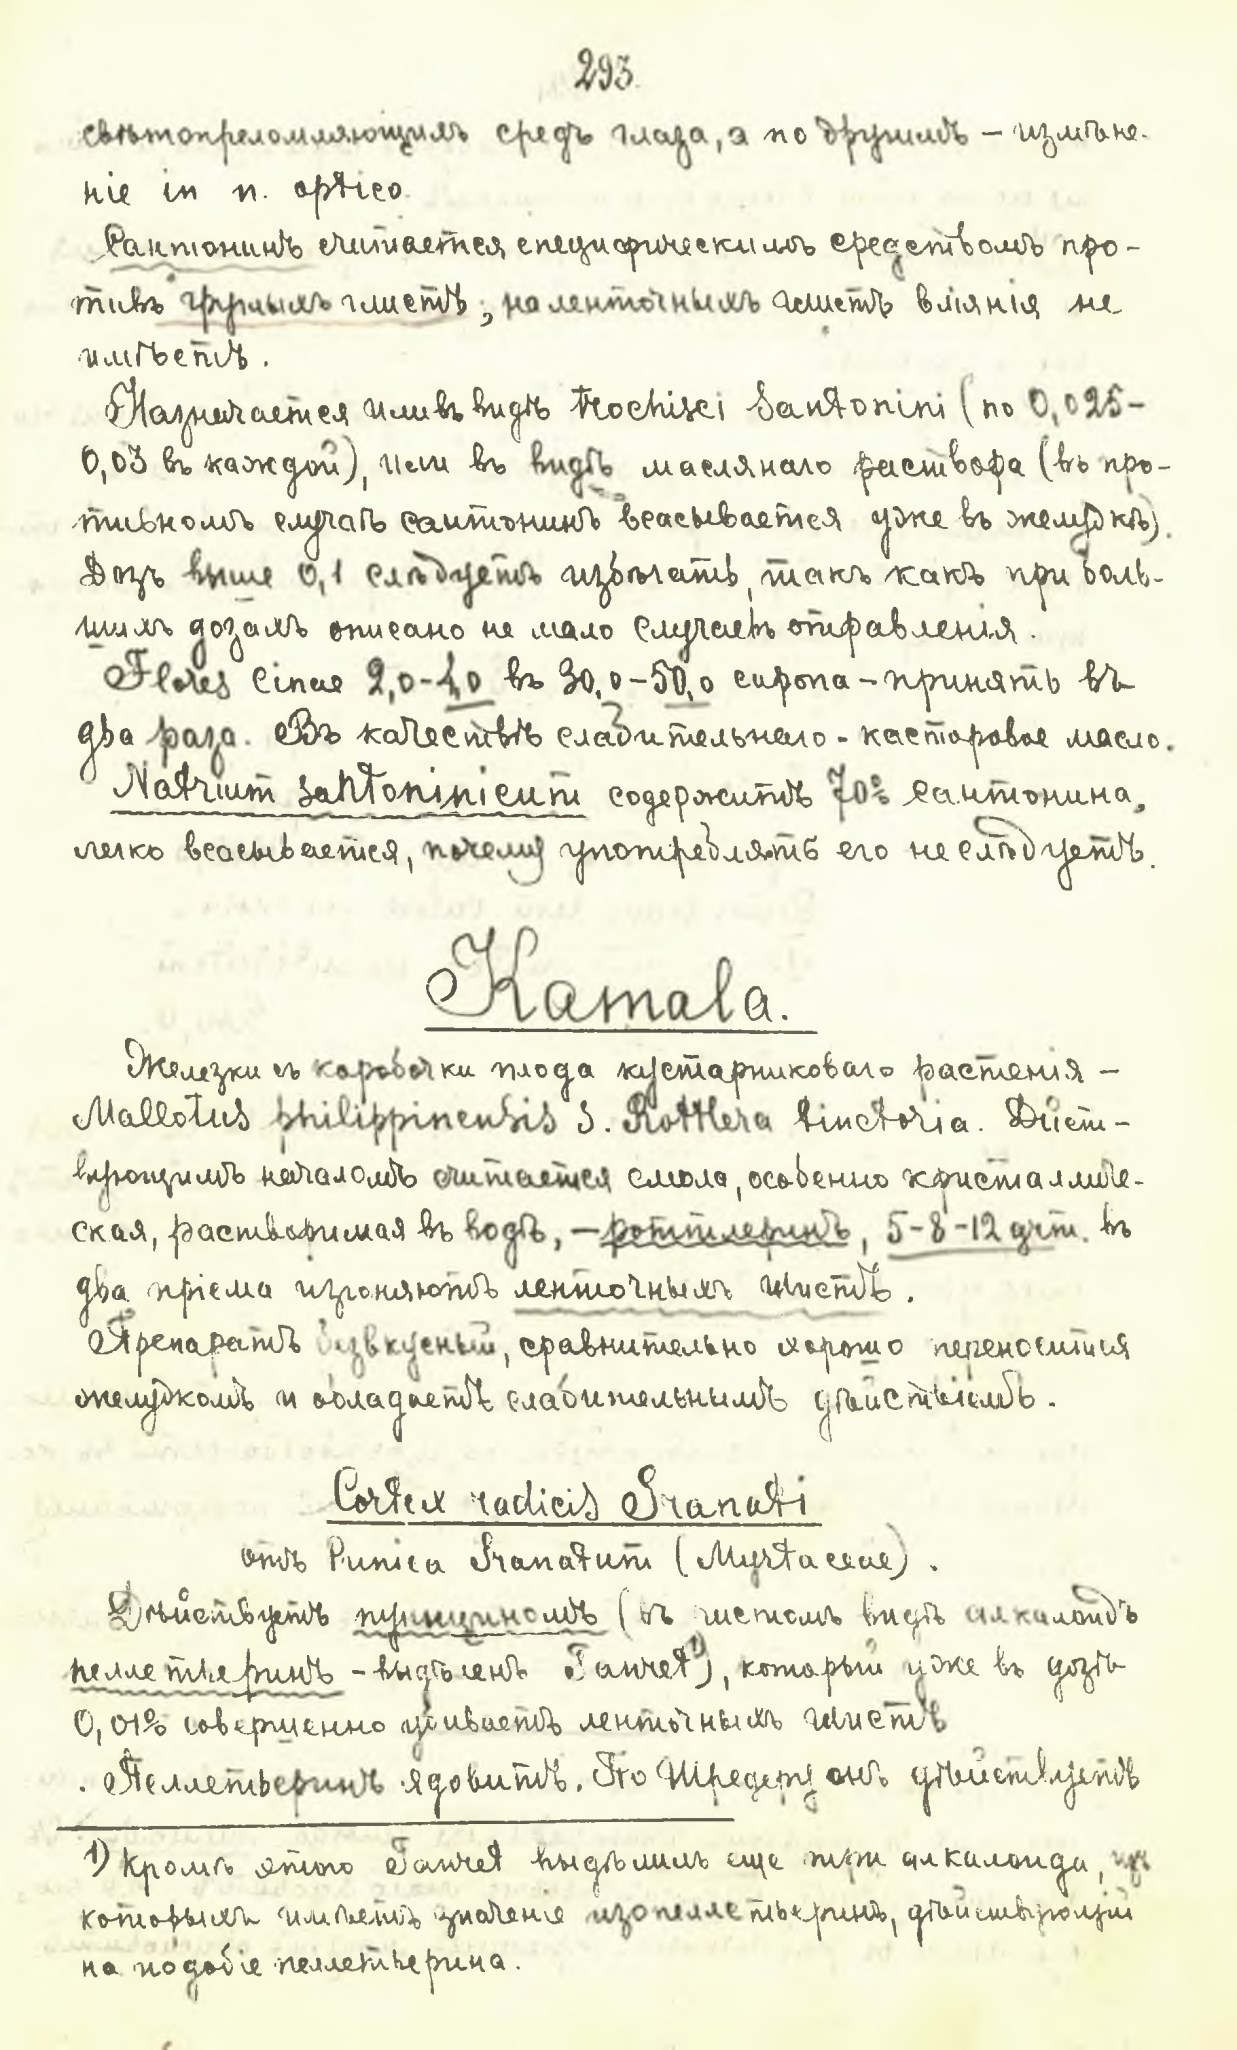 293
свѣтопреломляющихъ средъ глаза, а по другимъ – измѣне-
ніе in n. optico.
Сантонинъ считается специфическимъ средствомъ про-
тивъ круглыхъ глистъ; на ленточныхъ глистъ вліянія не
имѣетъ.
Назначается или въ видѣ trochisci Santonini (по 0,025–
0,03 въ каждой), или въ видѣ маслянаго раствора (въ про-
тивномъ случаѣ сантонинъ всасывается уже въ желудкѣ).
Дозъ выше 0,1 слѣдуетъ избѣгать, такъ какъ при боль-
шихъ дозахъ описано не мало случаевъ отравленія.
Flores Cinae 2,0–4,0 въ 30,0–50,0 сиропа – принять въ
два раза. Въ качествѣ слабительнаго – касторовое масло.
Natrium santoninicum содержитъ 70% сантонина,
легко всасывается, почему употреблять его не слѣдуетъ.
Kamala.
Железки съ коробочки плода кустарниковаго растенія –
Mallotus philippinensis s. Rottlera tinctoria. Дѣйст-
вующимъ началомъ считается смола, особенно кристалличе-
ская, растворимая въ водѣ, – роттлеринъ, 5–8–12 grm. въ
два пріема изгоняютъ ленточныхъ глистъ.
Препаратъ безвкусный, сравнительно хорошо переносится
желудкомъ и обладаетъ слабительнымъ дѣйствіемъ.
Cortex radicis Granati
отъ Punica Granatum (Myrtaceae).
Дѣйствуетъ пунициномъ (въ чистомъ видѣ алкалоидъ
пеллетьеринъ – выдѣленъ Tanret ¹⁾), который уже въ дозѣ
0,01% совершенно убиваетъ ленточныхъ глистъ
. Пеллетьеринъ ядовитъ. По Шредеру онъ дѣйствуетъ
1) Кромѣ этого Tanret выдѣлилъ еще три алкалоида, изъ
которыхъ имѣетъ значеніе изопеллетьеринъ, дѣйствующій
на подобіе пеллетьерина.